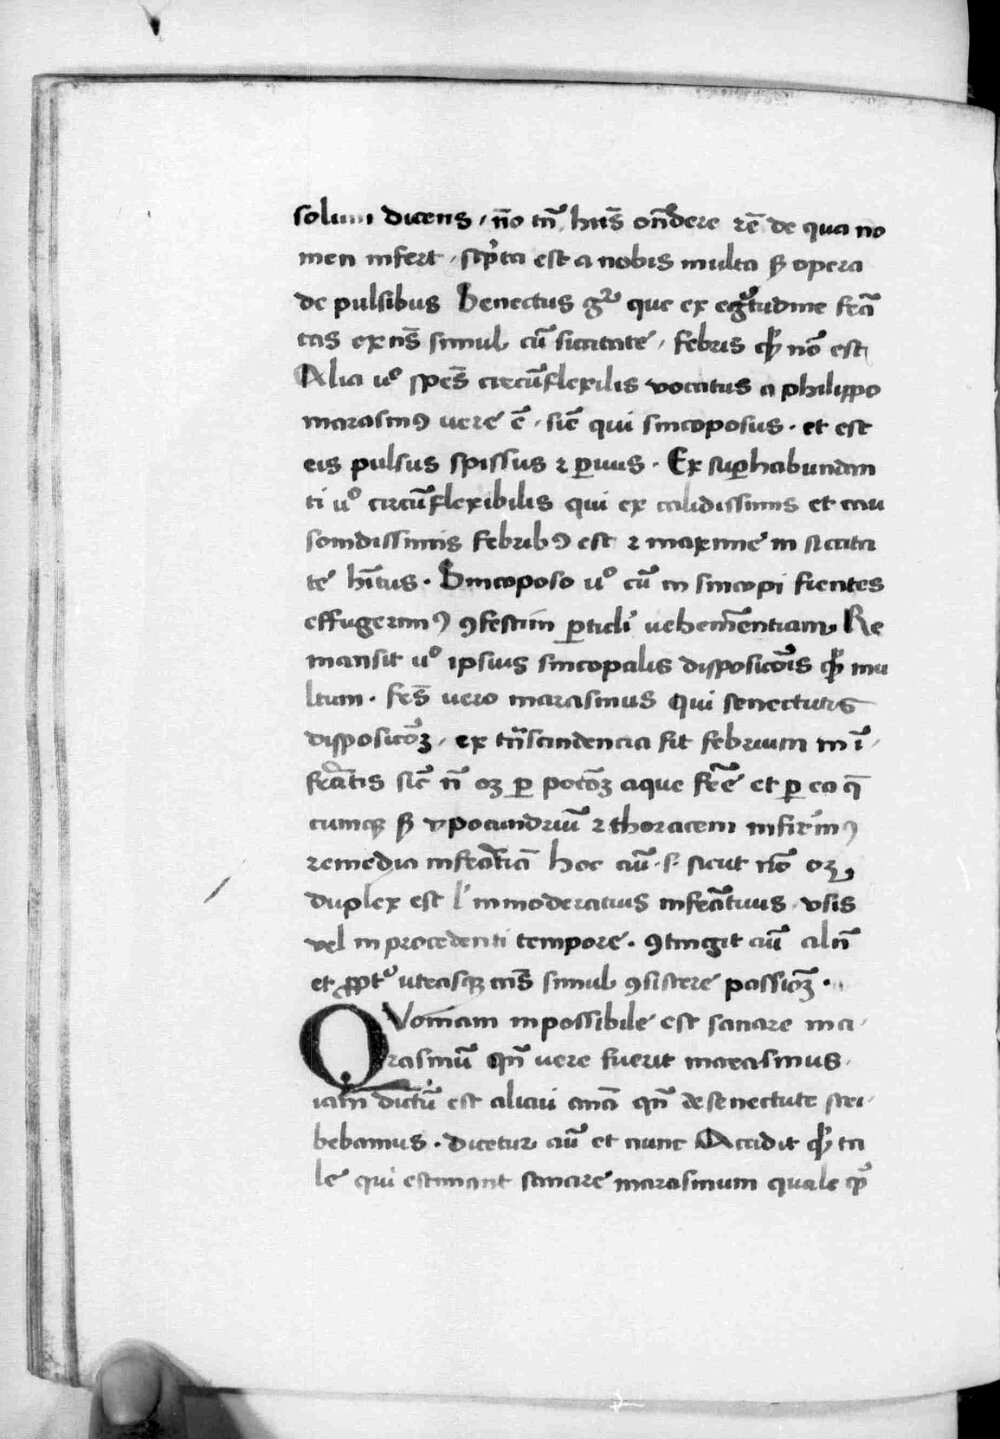 solum dicens / nõ tñ hñs oñdere rẽ de qua no
men infert / scp̃ta est a nobis multa ꝑ opera
de pulsibus Senectus gͬ que ex egͥtudine fc̃a
tas ex nͣs simul cũ siccitate / febris q̃ nõ est
Alia uº spẽs circũflexilis vocatus a philippo
marasmꝰ uere ẽ / sic̃ qui sincoposus · et est
eis pulsus spissus ⁊ ꝑuus · Ex suꝑhabundan
ti uº circũflexibilis qui ex calidissimis et cau
sonidissimis febribꝰ est ⁊ maxime in siccita
te hĩtus · Sincoposo uº cũ in sincopi fientes
effugerint ꝯfestim ꝑticl̃i uehemẽntiam Re
mansit uº ipsius sincopalis disposicõis q̃ mu
ltum · fc̃s vero marasmus qui senectutis
disposicõꝫ / ex tñscendencia fit febrium in ĩ /
fc̃atis sic̃ ñ oꝫ ꝑ potõꝫ aque fr̃e et ꝑ ea q̃
cumqꝫ ꝑ ypocundriũ ⁊ thoracem infirm̃
remedia infc̃atiã hoc aũ · s · sicut nõ oꝫ
duplex est l' inmoderatius infc̃atiuus · vsis
vel in procedenti tempore · ꝯtingit aũ aliñ
et ꝓpt̃ utrasqꝫ cãs simul ꝯsistere passioꝫ ·
QVoniam inpossibile est sanare ma /
rasmũ qñ vere fuerit marasmus ·
iam dictũ est alicui cã qñ de senectute scri /
bebamus · dicetur aũ et nunc Accidit q̃ ta
le qui estimant sanare marasmum quale q̃